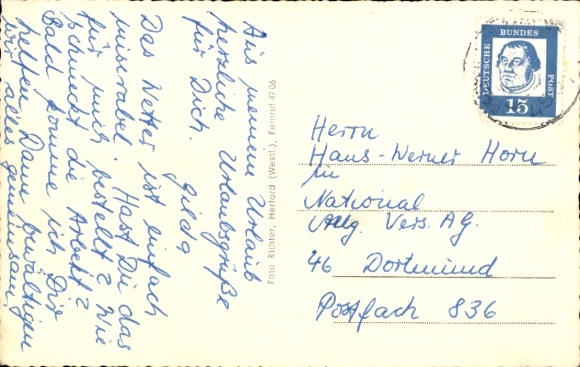 Aus meinem Urlaub
herzliche Urlaubsgrüße
für Dich.
Gilda
Das Wetter ist einfach
miserabel. Hast Du das
für mich bestellt? Wie
schmeckt die Arbeit?
Bald komme ich Dir
helfen. Dann bewältigen
wir alles gemeinsam.
Foto Richter, Herford (Westf.), Fernruf 4706
DEUTSCHE BUNDES POST
15
Herrn
Hans-Werner Horn
in
National
Allg. Vers. AG.
46 Dortmund
Postfach 836